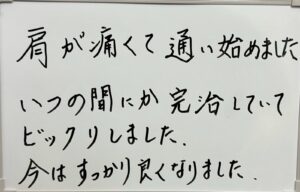 肩が痛くて通い始めました
いつの間にか完治していて
ビックリしました.
今はすっかり良くなりました.